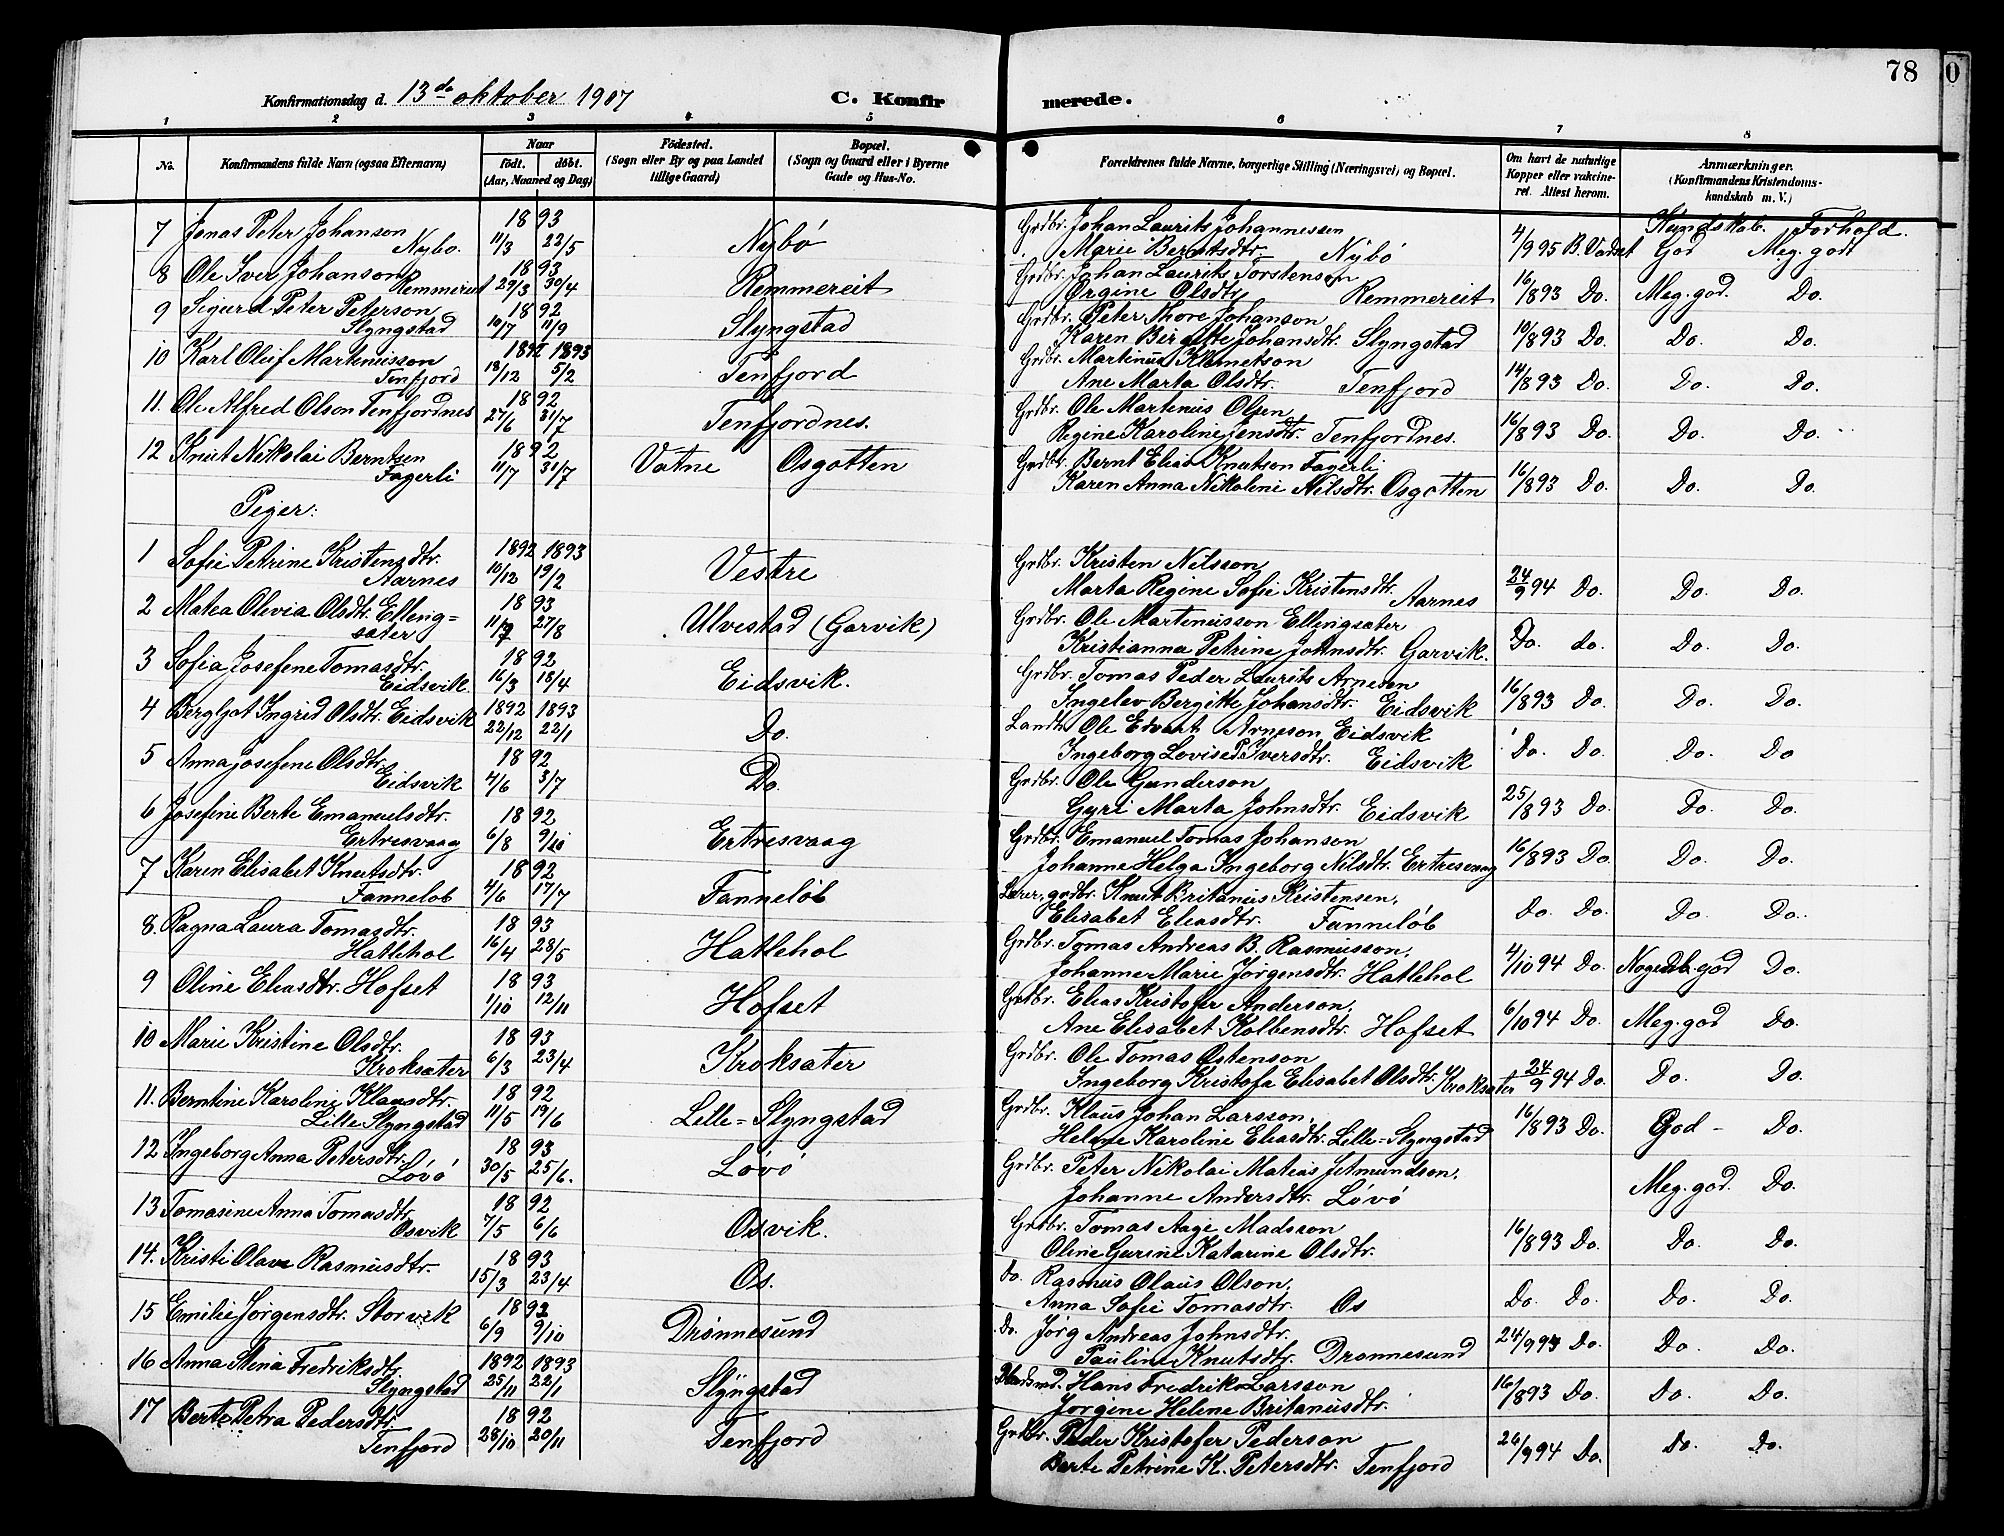 78
0
Konfirmationsdag d. 13de oktober 1907 C. Konfirmerede.
1 2 3 4 5 6 7 8
No. Konfirmandens fulde Navn (ogsaa Efternavn) Naar födt. döbt. (Aar, Maaned og Dag) Födested. (Sogn eller By og paa Landet tillige Gaard) Bopæl. (Sogn og Gaard eller i Byerne Gade og Hus-No. Forældrenes fulde Navne, borgerlige Stilling (Næringsvei) og Bopæl. Om havt de naturlige Kopper eller vakcineret. Attest herom. Anmærkninger. (Konfirmandens Kristendomskundskab m. V.)
Kundskab. Forhold.
7 Jonas Peter Johanson 1893 Grdbr. Johan Laurits Johannessen
Nybø. 11/3 22/5 Nybø Marie Berntsdtr. Nybø 4/9 95 B. Vadset God Meg. godt
8 Ole Iver Johanson 1893 Grdbr. Johan Laurits Torstenson
Remmereit 29/3 30/4 Remmereit Ørgine Olsdtr. Remmereit 16/8 93 Do. Meg. god. Do.
9 Sigurd Peter Peterson 1892 Grdbr. Peter Thore Johanson
Slyngstad 10/7 11/9 Slyngstad Karen Birgitte Johansdtr. Slyngstad 10/8 93 Do. Do. Do.
10 Karl Oluf Martinusson 1892 1893 Grdbr. Martinus Klemetson
Tenfjord 18/12 5/2 Tenfjord Ane Marta Olsdtr. Tenfjord 14/8 93 Do. Do. Do.
11. Ole Alfred Olson Tenfjordnes 1892 Grdbr. Ole Martinus Olsen
27/6 31/7 Tenfjordnes. Regine Karoline Jensdtr. Tenfjordnes. 16/8 93 Do. Do. Do.
12 Knut Nikolai Berntsen 1892 Grdbr. Bernt Elias Knutson Fagerli
Fagerli 11/7 31/7 Vatne Osgotten Karen Anna Nikoline Nilsdtr. Osgotten 16/8 93 Do. Do. Do.
Piger:
1 Sofie Petrine Kristensdtr. 1892 1893 Grdbr. Kristen Nilsson
Aarnes 10/12 19/2 Vestre Marta Regine Sofie Kristensdtr. Aarnes 24/9 94 Do. Do. Do.
2 Matea Olivia Olsdtr. Elleng= 1893 Grdbr. Ole Martinusson Ellingsæter
sæter 27/8 Ulvestad (Gorvik) Kristianna Petrine Johnsdtr. Gorvik. Do. do. Do. Do.
3 Sofia Josefene Tomasdtr. 1892 Grdbr. Tomas Peder Laurits Arneson
Eidsvik. 16/3 18/4 Eidsvik. Ingelev Bergitte Johansdtr. Eidsvik 16/8 93 Do. Do. Do.
4 Bergljot Ingrid Olsdtr. Eidsvik 1892 1893 Landh. Ole Edvart Arneson Eidsvik
22/12 22/1 Do. Ingeborg Lovise P. Iversdtr. Eidsvik Do. Do. Do. Do
5 Anna Josefene Olsdtr. 1892 Grdbr. Ole Gunderson
Eidsvik 4/6 3/7 Do. Gyri Marta Johnsdtr. Eidsvik 25/8 93 Do. Do. Do.
6 Josefine Berte Emanuelsdtr. 1892 Grdbr. Emanuel Tomas Johanson
Ertresvaag 6/8 9/10 Ertresvaag Johanne Helga Ingeborg Nilsdtr. Ertresvaag 16/8 93 Do. Do. Do.
7 Karen Elisabet Knutsdtr. 1892 Lærer, grdbr. Knut Britanus Kristensen,
Fanneløb 4/6 17/7 Fanneløb Elisabet Eliasdtr. Fanneløb Do. Do. Do. Do.
8. Ragna Laura Tomasdtr. 1893 Grdbr. Tomas Andreas B. Rasmusson,
Hatlehol 16/4 28/5 Hatlehol Johanne Marie Jørgensdtr. Hatlehol 4/10 94 Do. god Do.
9 Oline Eliasdtr. Hofset 1893 Grdbr. Elias Kristofer Anderson,
1/10 12/11 Hofset Ane Elisabet Kolbensdtr. Hofset 6/10 94 Do. Meg. god Do.
10 Marie Kristine Olsdtr. 1893 Grdbr. Ole Tomas Ostenson
Kroksæter 6/3 23/4 Kroksæter Ingeborg Kristofa Elisabet Olsdtr. Kroksæter 24/9 94 Do. Do. Do.
11. Berntine Karoline Klausdtr. 1892 Grdbr. Klaus Johan Larsson,
Lille Slyngstad 11/5 19/6 Lille=Slyngstad Helene Karoline Eliasdtr. Lille=Slyngstad 16/8 93 Do. God – Do.
12 Ingeborg Anna Petersdtr. 1893 Grdbr. Peter Nikolai Matias Jetmundson,
Løvø 30/5 25/6. Løvø Johanne Andersdtr. Løvø Meg. god. Do.
13 Tomasine Anna Tomasdtr. 1892 Grdbr. Tomas Aage Madsson
Osvik 7/5 6/6 Osvik. Oline Gurine Katarine Olsdtr. 16/8 93 Do. Do. Do.
14. Kristi Olava Rasmusdtr. 1893 do. Rasmus Olaus Olson,
15/3 23/4 Os. Anna Sofie Tomasdtr. Os Do. Do. Do. Do.
15 Emilie Jørgensdtr. Storvik 1892 Do. Jørg Andreas Johnsdtr.
6/9 9/10 Drønnesund Pauline Knutsdtr. Drønnesund Do. Do. Do.
16 Anna Stina Fredriksdtr. 1892 1893 Hans Fredrik Larsson
Slyngstad 25/11 22/1 Slyngstad Jørgine Helene Britanusdtr. 16/8 93 Do. Do. Do.
17 Berte Petra Pedersdtr. 1892 Grdbr. Peder Kristofer Pederson
Tenfjord 28/10 20/11 Tenfjord Berte Petrine K. Petersdtr. Tenfjord 26/9 94 Do. Do. Do.